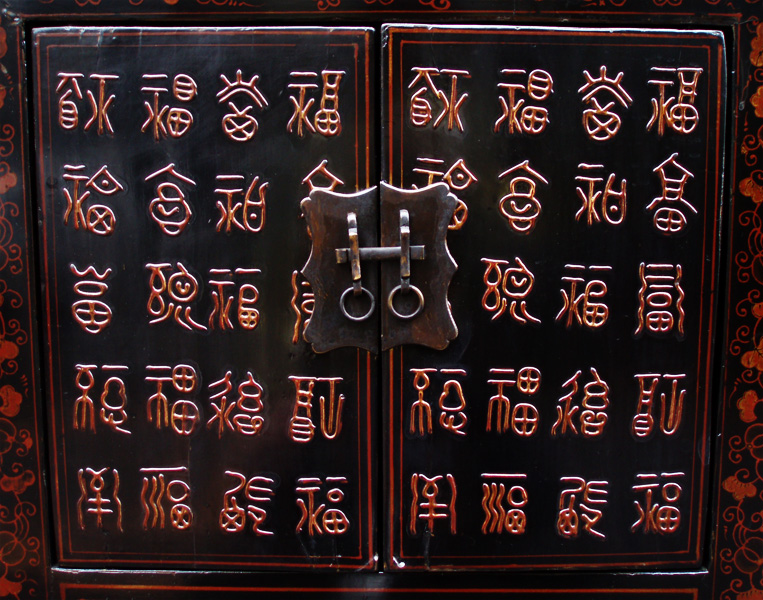 福福福福 福福福福
福福福 福福福福
福福福 福福福
福福福福 福福福福
福福福福 福福福福